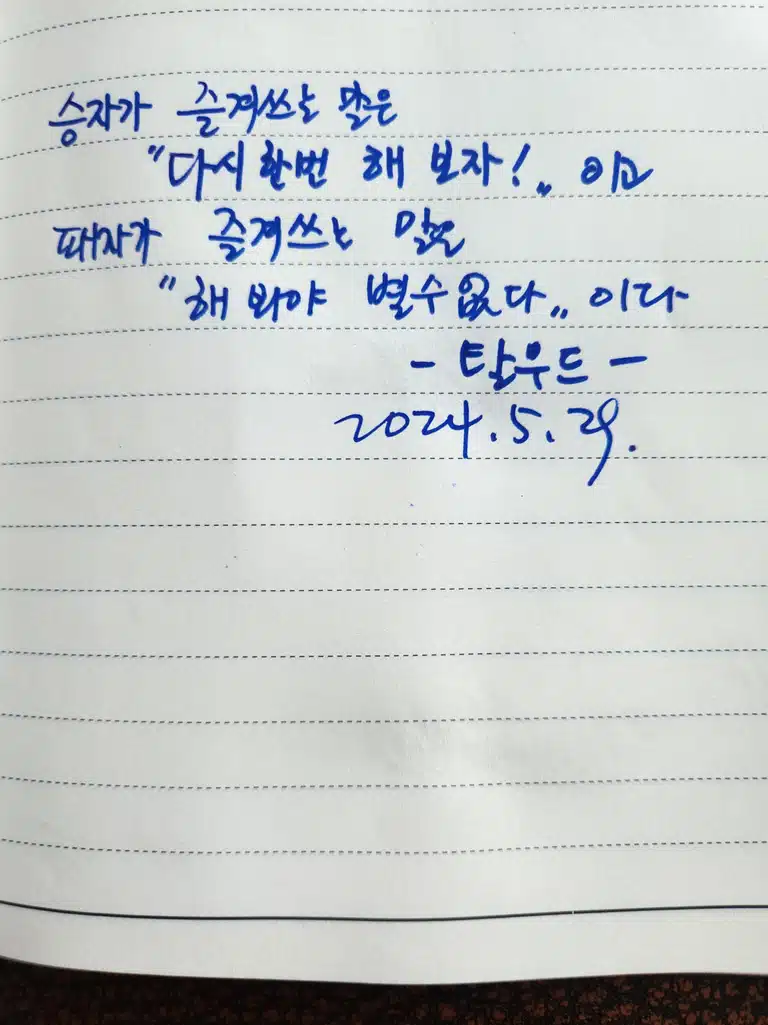 승자가 즐겨쓰는 말은
"다시한번 해 보자!„ 이고
패자가 즐겨쓰는 말은
"해 봐야 별수없다„ 이다
- 탈우드 -
2024.5.29.